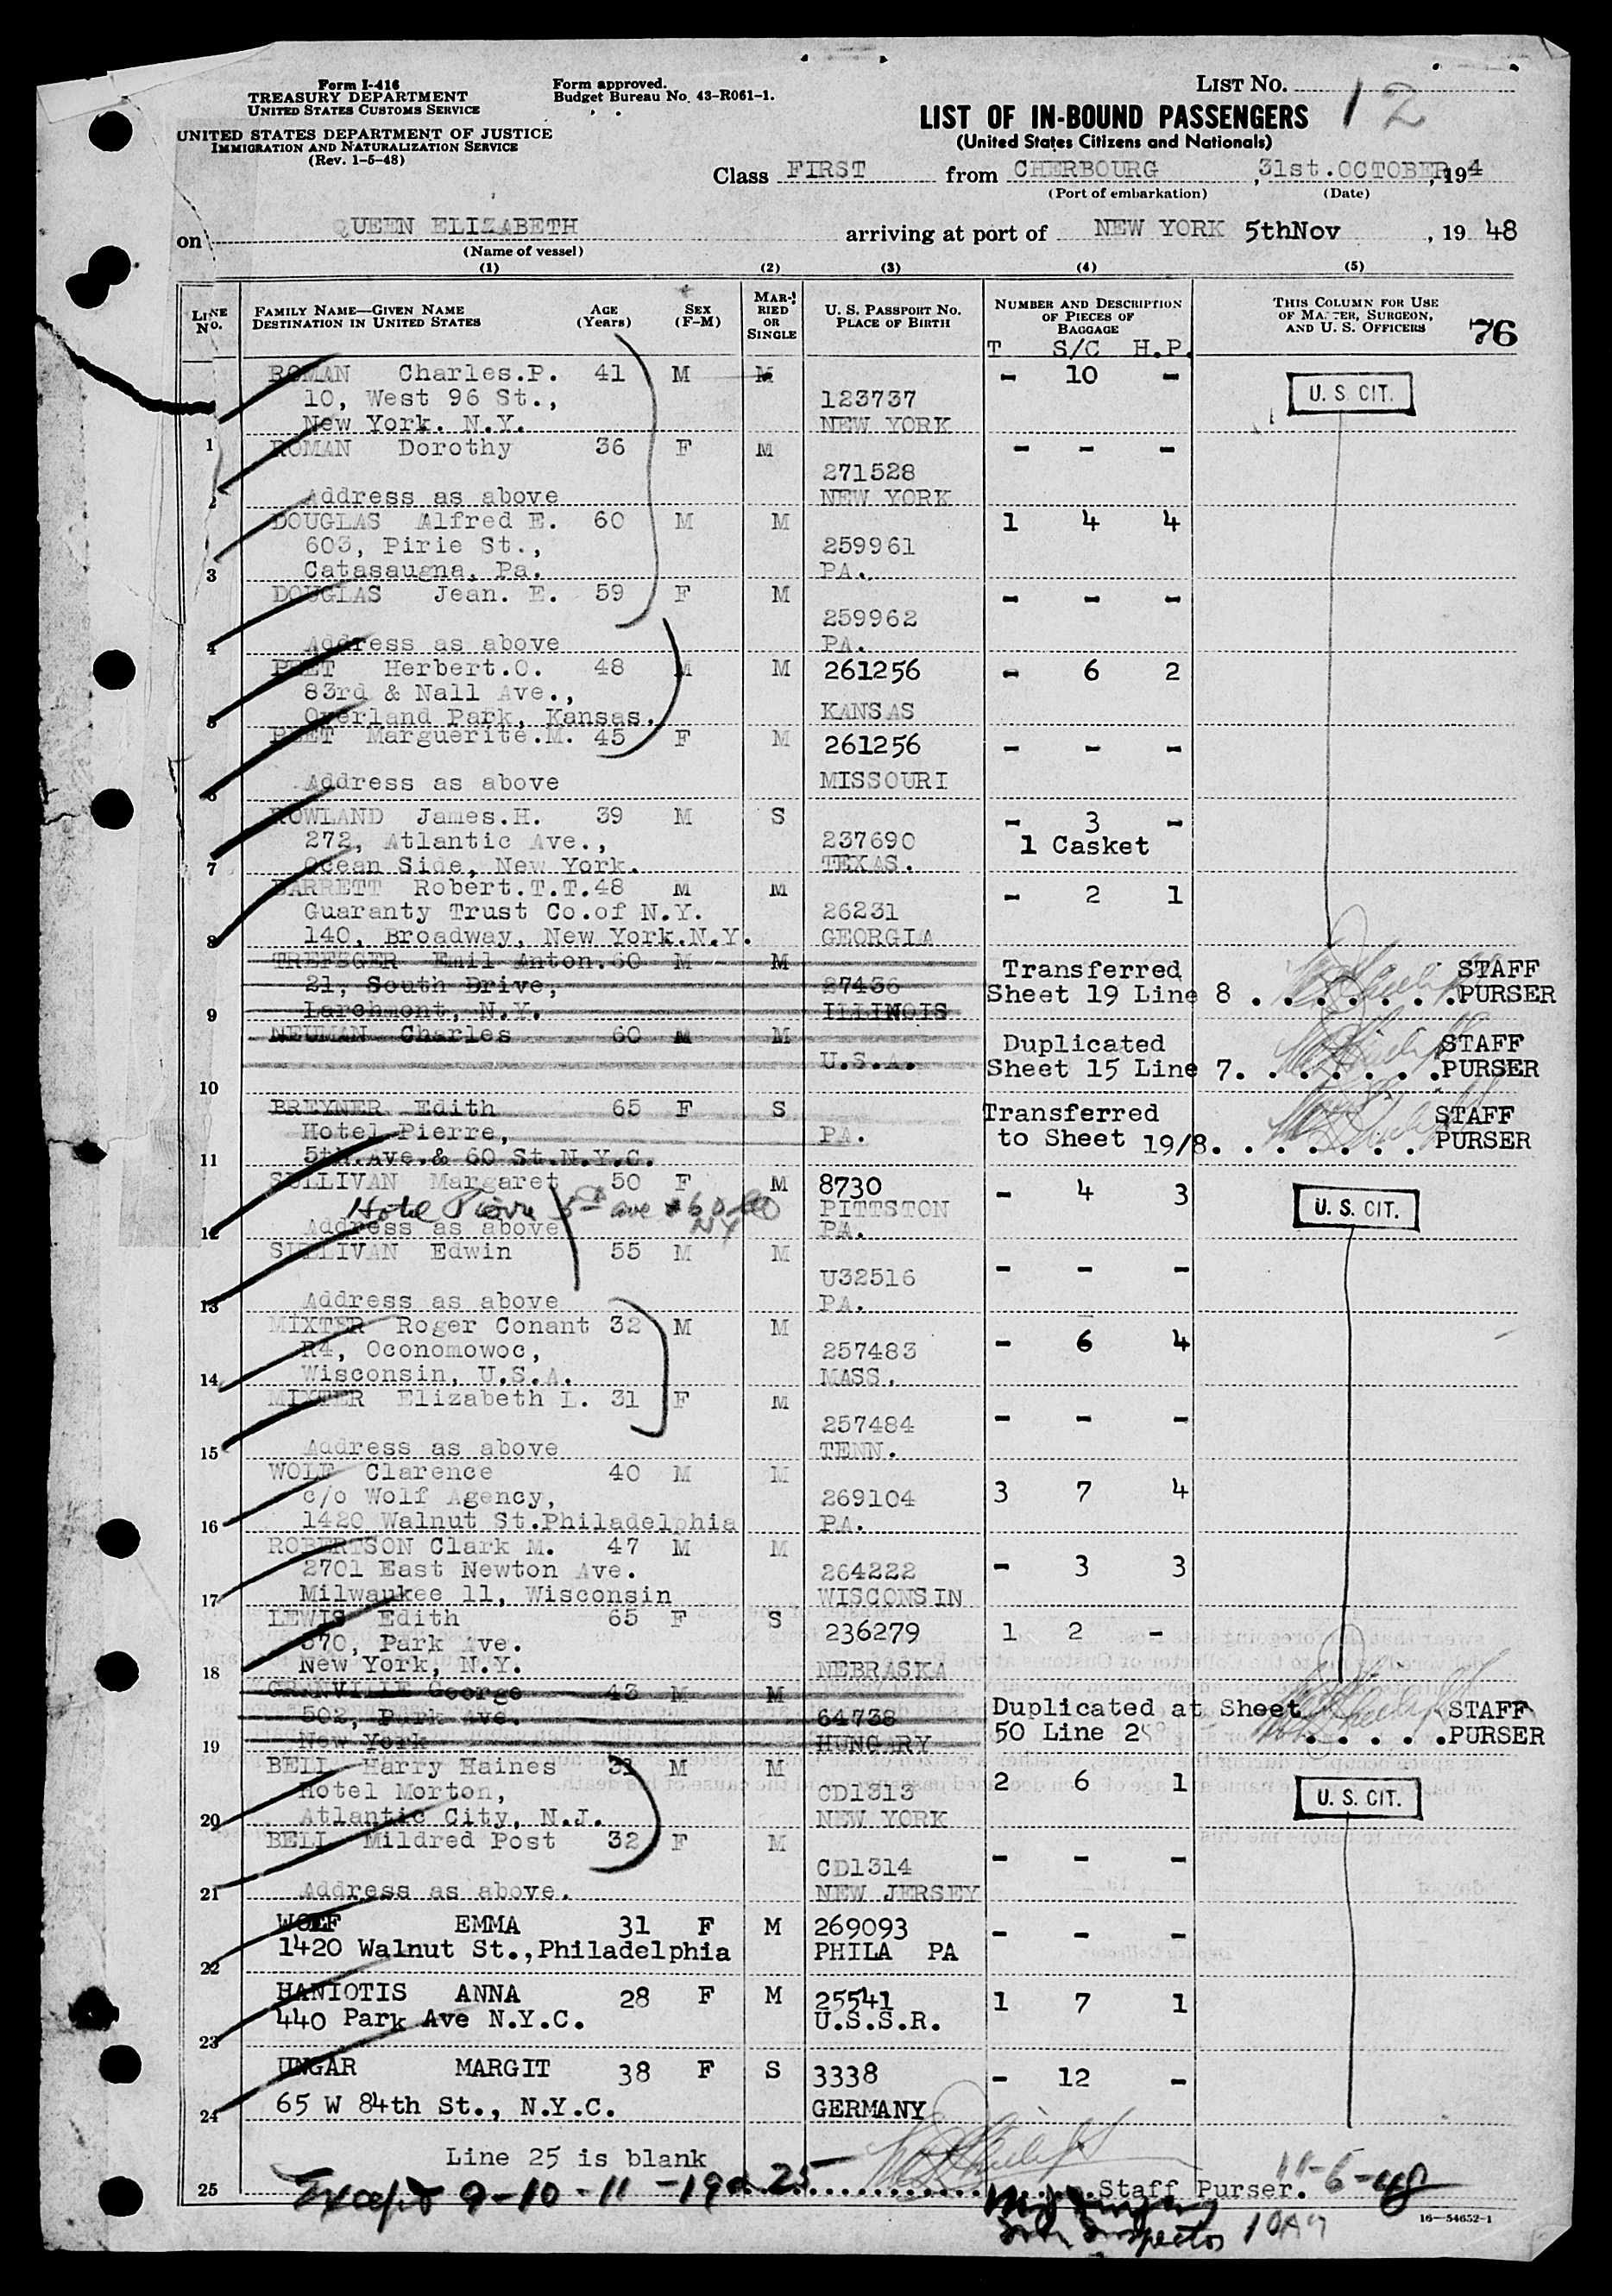 Form I-416
TREASURY DEPARTMENT
UNITED STATES CUSTOMS SERVICE
Form approved.
Budget Bureau No. 43-R061-1.
LIST NO. 12
UNITED STATES DEPARTMENT OF JUSTICE
IMMIGRATION AND NATURALIZATION SERVICE
(Rev. 1-5-48)
LIST OF IN-BOUND PASSENGERS
(United States Citizens and Nationals)
Class FIRST from CHERBOURG, 31st.OCTOBER, 194
(Port of embarkation) (Date)
on QUEEN ELIZABETH arriving at port of NEW YORK 5thNov, 19 48
(Name of vessel)
(1) (2) (3) (4) (5)
LINE No. FAMILY NAME—GIVEN NAME DESTINATION IN UNITED STATES AGE (Years) SEX (F-M) MARRIED OR SINGLE U. S. PASSPORT NO. PLACE OF BIRTH NUMBER AND DESCRIPTION OF PIECES OF BAGGAGE THIS COLUMN FOR USE OF MASTER, SURGEON, AND U. S. OFFICERS 76
T S/C H.P.
ROMAN Charles.P. 41 M M - 10 - U. S. CIT.
10, West 96 St., 123737
1 New York. N.Y. NEW YORK
ROMAN Dorothy 36 F M - - -
271528
2 Address as above NEW YORK
DOUGLAS Alfred E. 60 M M 1 4 4
603, Pirie St., 259961
3 Catasaugna, Pa. PA.
DOUGLAS Jean. E. 59 F M - - -
259962
4 Address as above PA.
PEET Herbert.O. 48 M M 261256 - 6 2
83rd & Nall Ave.,
5 Overland Park, Kansas. KANSAS
PEET Marguerite.M. 45 F M 261256 - - -
6 Address as above MISSOURI
ROWLAND James.H. 39 M S - 3 -
272, Atlantic Ave., 237690 1 Casket
7 Ocean Side, New York. TEXAS.
BARRETT Robert.T.T. 48 M M - 2 1
Guaranty Trust Co.of N.Y. 26231
8 140, Broadway, New York.N.Y. GEORGIA
TREFEGER Emil Anton. 60 M M Transferred STAFF
21, South Drive, 27436 Sheet 19 Line 8 . . . . . . . PURSER
9 Larchmont, N.Y. ILLINOIS
NEUMAN Charles 60 M M Duplicated STAFF
U.S.A. Sheet 15 Line 7. . . . . . . PURSER
10
BREYNER Edith 65 F S Transferred STAFF
Hotel Pierre, PA. to Sheet 19/8. . . . . . . PURSER
11 5th.Ave.& 60 St.N.Y.C.
SULLIVAN Margaret 50 F M 8730 - 4 3 U. S. CIT.
Hotel Pierre 5th ave & 60 St NY PITTSTON
12 Address as above PA.
SULLIVAN Edwin 55 M M - - -
U32516
13 Address as above PA.
MIXTER Roger Conant 32 M M - 6 4
R4, Oconomowoc, 257483
14 Wisconsin, U.S.A. MASS.
MIXTER Elizabeth L. 31 F M - - -
257484
15 Address as above TENN.
WOLF Clarence 40 M M 3 7 4
c/o Wolf Agency, 269104
16 1420 Walnut St.Philadelphia PA.
ROBERTSON Clark M. 47 M M - 3 3
2701 East Newton Ave. 264222
17 Milwaukee 11, Wisconsin WISCONSIN
LEWIS Edith 65 F S 236279 1 2 -
570, Park Ave.
18 New York, N.Y. NEBRASKA
GRANVILLE George 43 M M Duplicated at Sheet STAFF
502, Park Ave. 64738 50 Line 2 . . . . . PURSER
19 New York HUNGARY
BELL Harry Haines 31 M M 2 6 1 U. S. CIT.
Hotel Morton, CD1313
20 Atlantic City, N.J. NEW YORK
BELL Mildred Post 32 F M - - -
CD1314
21 Address as above. NEW JERSEY
WOLF EMMA 31 F M 269093 - - -
22 1420 Walnut St.,Philadelphia PHILA PA
HANIOTIS ANNA 28 F M 25541 1 7 1
23 440 Park Ave N.Y.C. U.S.S.R.
UNGAR MARGIT 38 F S 3338 - 12 -
24 65 W 84th St., N.Y.C. GERMANY
Line 25 is blank
25 Except 9-10-11-19 & 25 Staff Purser. 11-6-48
Inspector
16—54652-1